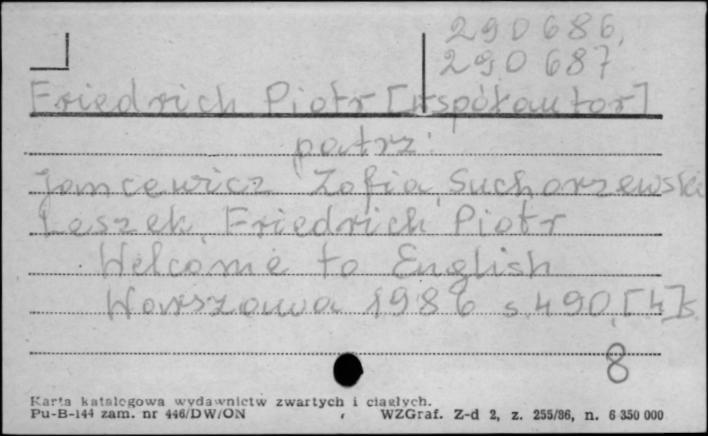 290686,
290687
Friedrich Piotr [współautor]
patrz:
Jancewicz Zofia, Suchorzewski
Leszek, Friedrich Piotr
Welcome to English
Warszawa 1986 s. 490, [4]s.
8
Karta katalogowa wydawnictw zwartych i ciągłych.
Pu-B-144 zam. nr 446/DW/ON WZGraf. Z-d 2, z. 255/86, n. 6 350 000